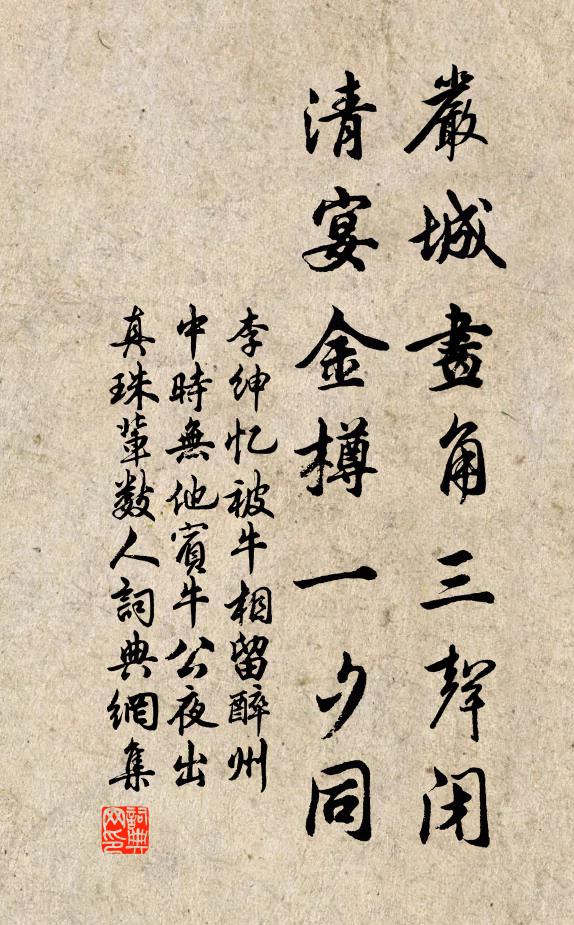 嚴城畫角三聲闭
清宴金樽一夕同
李紳忆被牛相留醉州
中時無他賓牛公夜出
真珠輩数人詞典網集
詞典网印